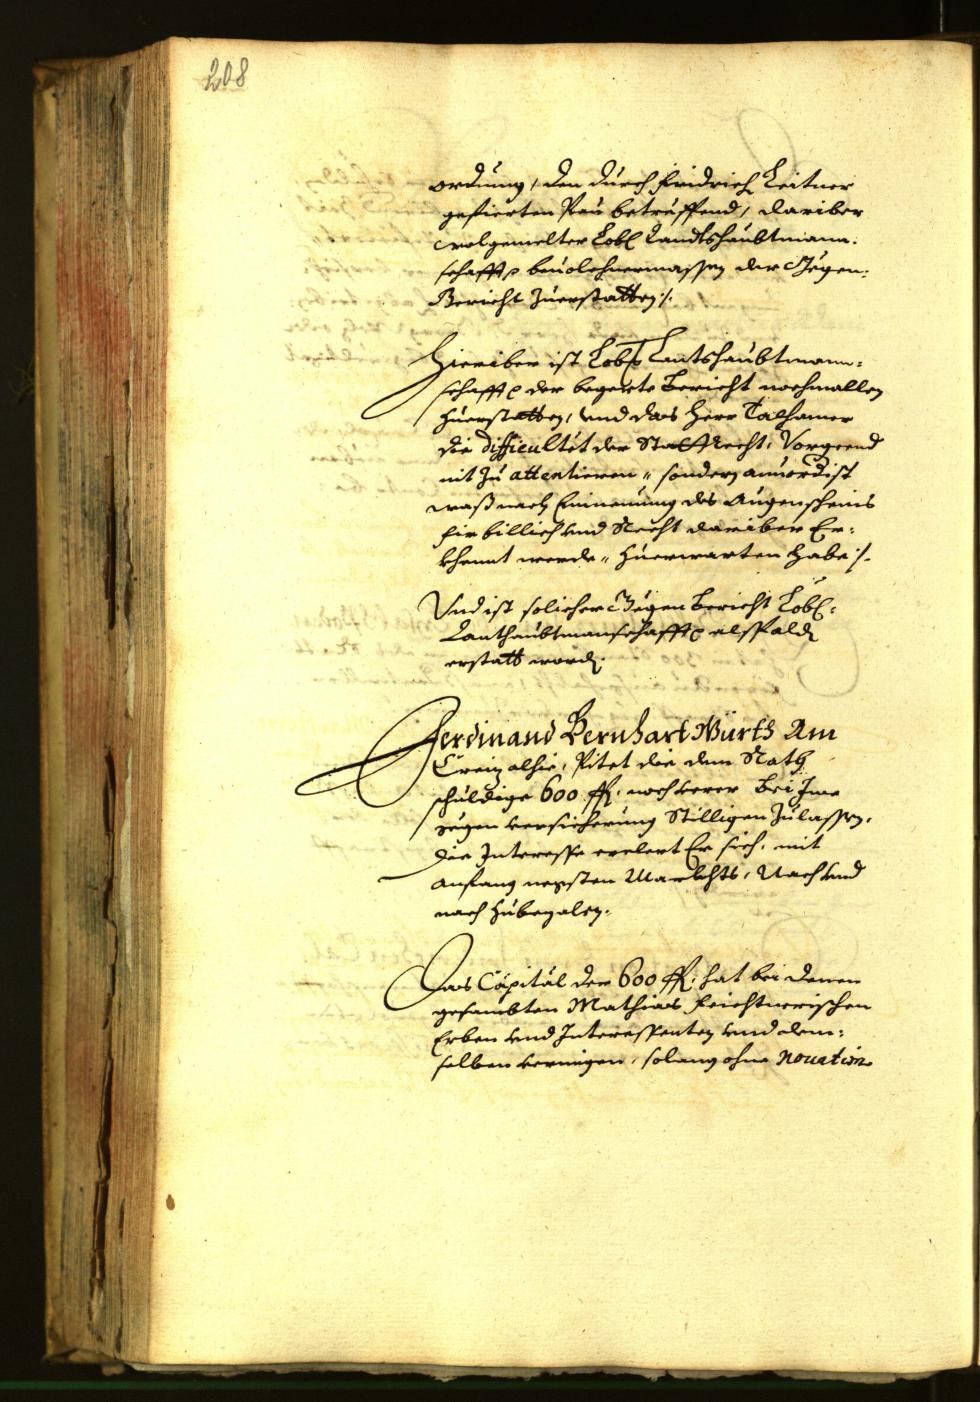 208
ordnung, den durch Fridrich Leitner
gefierten Pau betreffend, dariber
wolgemelter Lobl Landtshaubtmann:
schafft beuolchnermassen der Gegen:
Bericht zuerstatten /.
Hieriber ist Lobl Lantshaubtmann:
schafft der begerte Bericht nochmallen
zuerstatten, vnd das Herr Talhamer
die difficultet der Statt Recht, Vorgeend
nit zu attentieren, sondern
was nach Einnemung des Augenscheins
fir billich vnd Recht dariber Er:
khennt werde, zuerwarten habe /.
Vnd ist solicher Gegen Bericht Lobl:
Lanthaubtmanschafft alspald
erstatt word.
Ferdinand Bernhart Würth Am
Creiz alhie, Pitet die dem Rath
schuldige 600 fl. noch verer Bei Ime
gegen versicherung Stilligen zulassen,
die Interesse erclert Er sich, mit
anfang negsten Marckhts, Nach vnd
nach zubezalen.
Das Capital der 600 fl. hat bei denen
gesambten Mathias Feichtnerischen
Erben vnd Interessenten vnd dem:
selben vermigen, solang ohne novation